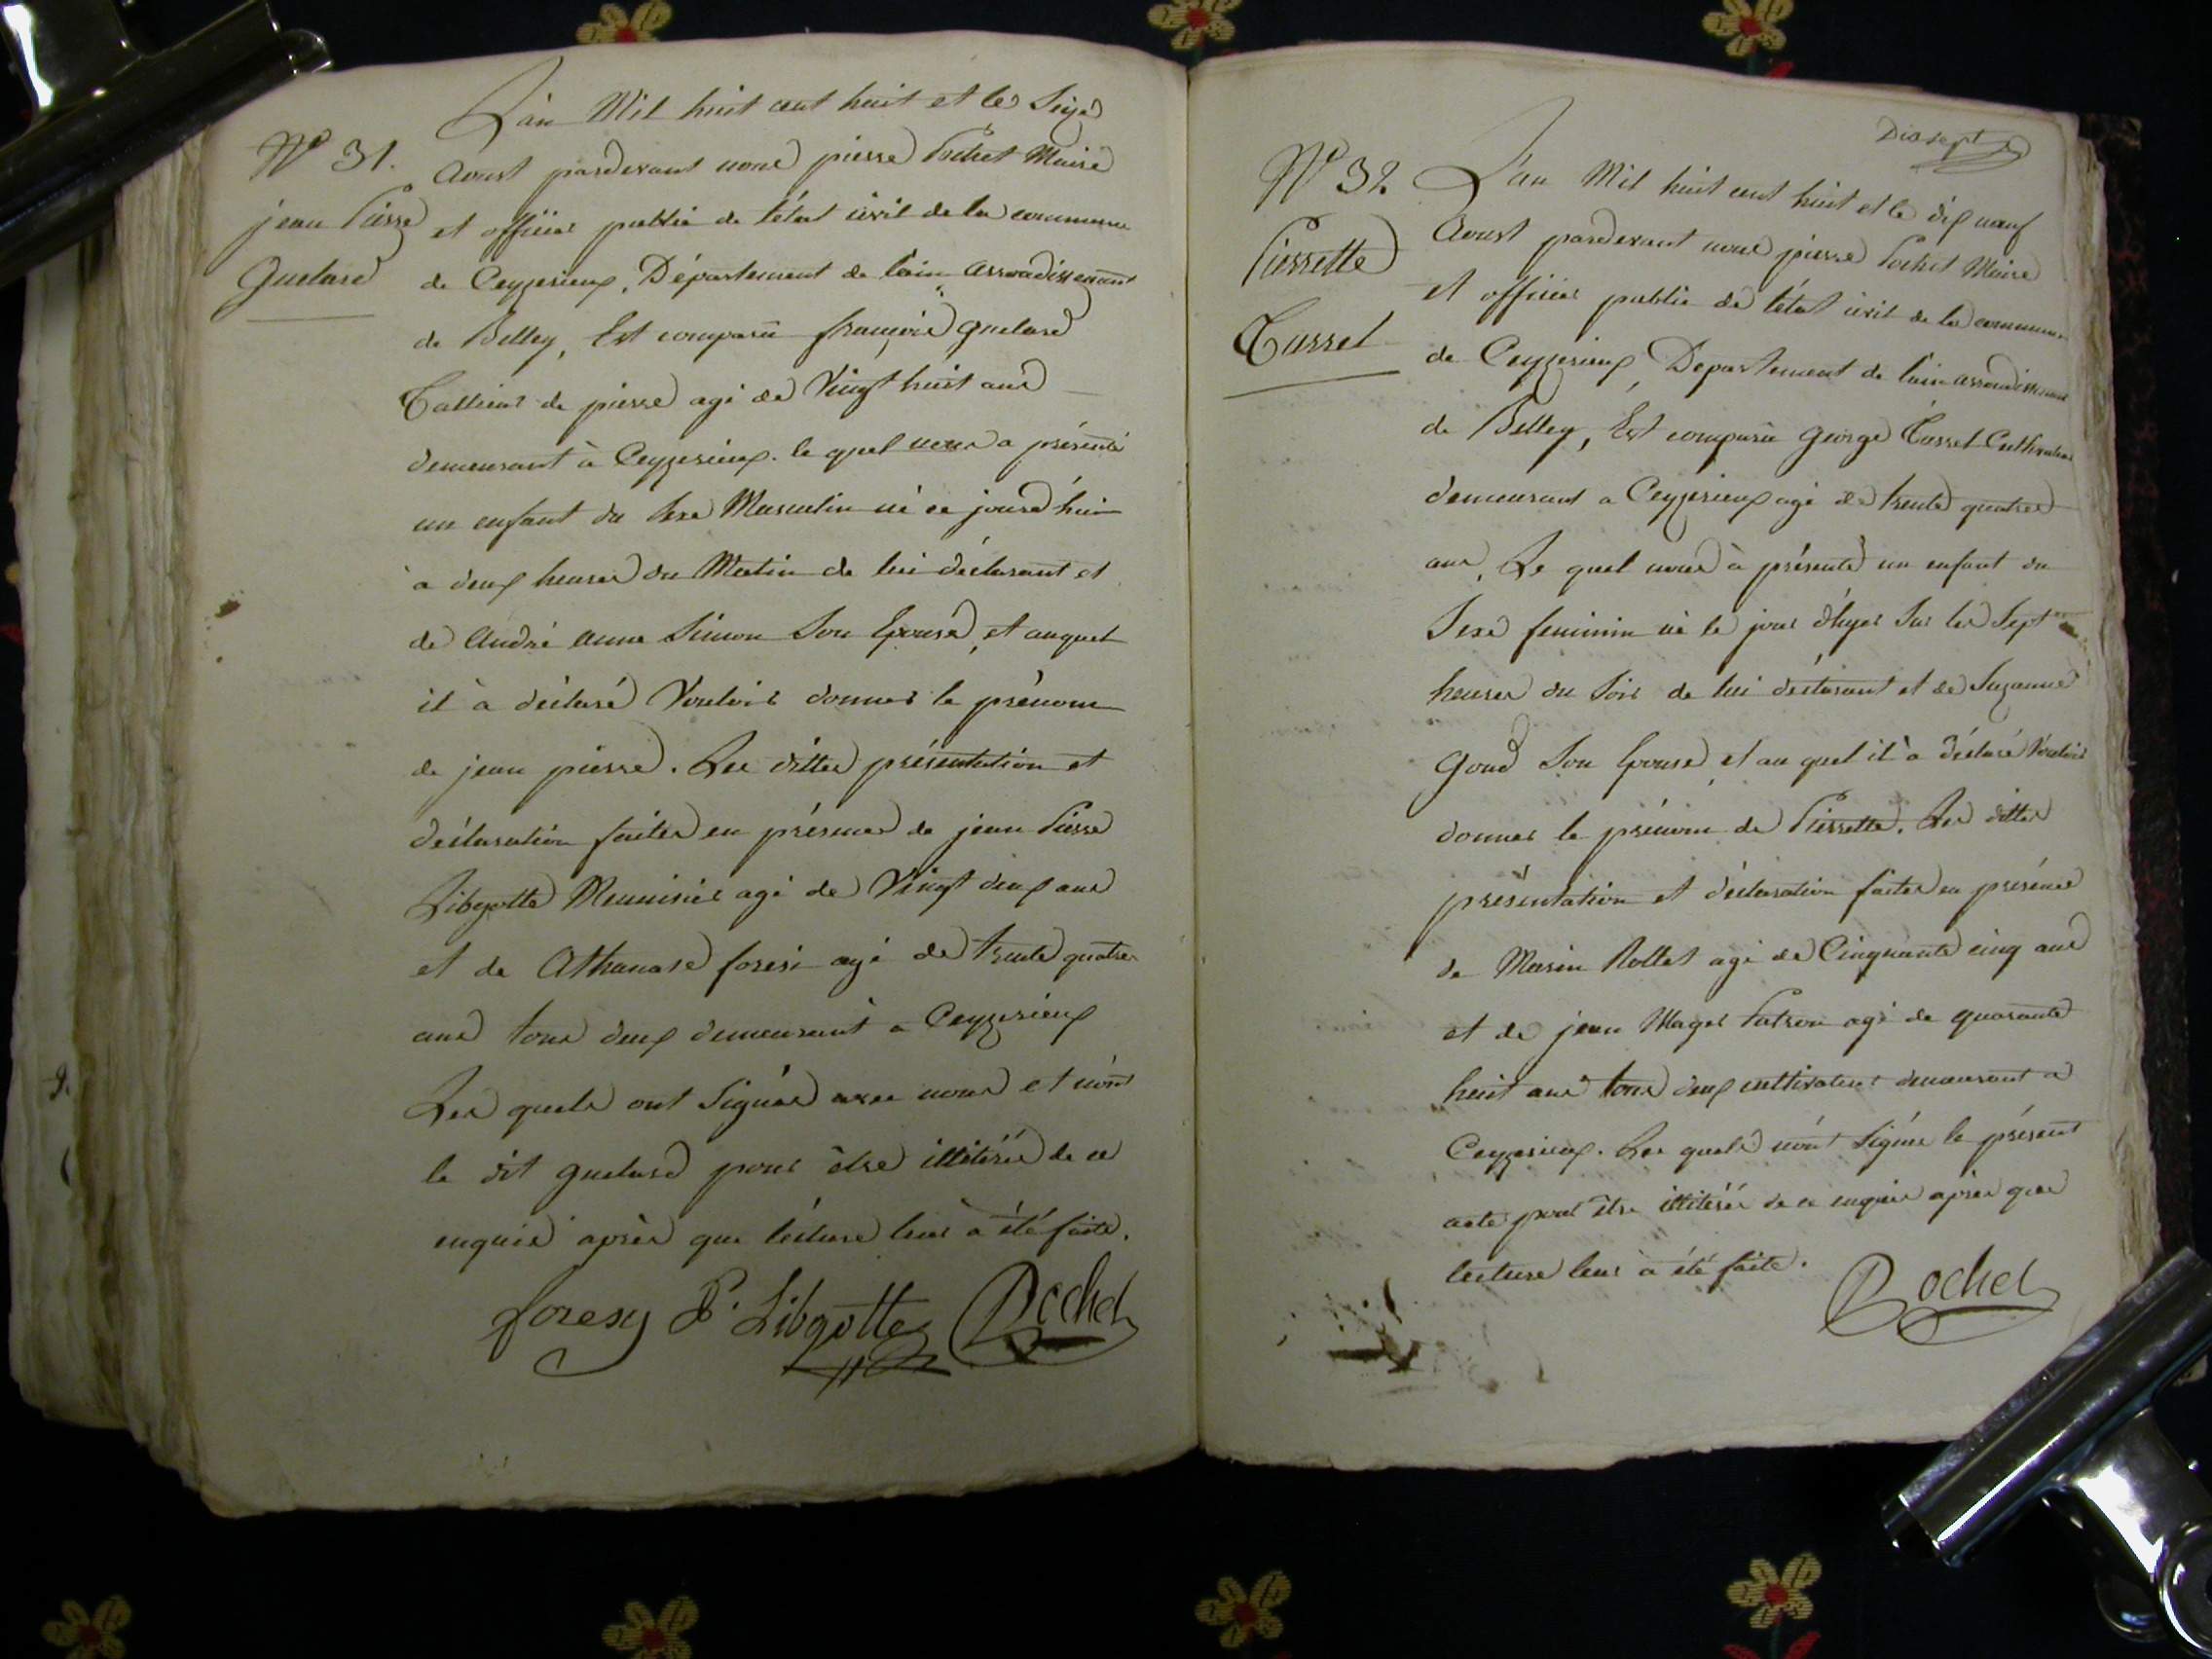 L'an Mil huit cent huit et le Seize
N° 31. Aoust pardevant nous pierre Pochet Maire
jean Pierre et officier public de l'état civil de la commune
Guelard de Ceyzerieux, Département de l'ain arrondissement
de Belley, Est comparu françois guelard
Tallieur de pierre agé de Vingt huit ans
demeurant à Ceyzerieux. le quel nous a présenté
un enfant du sexe Masculin né ce jourd'hui
à deux heures du Matin de lui déclarant et
de André anne Simon Son Epouse, et auquel
il à déclaré Vouloir donner le prénom
de jean pierre. Les dittes présentation et
déclaration faites en présence de jean Pierre
Libgotte Meunier agé de Vingt deux ans
et de Athanase foresi agé de trente quatre
ans tous deux demeurant a Ceyzerieux
Les quels ont Signés avec nous et non
le dit guelard pour être illitéré de ce
enquis après que lécture leur à été faite.
foresy P. Libgotte Pochet
Dix sept
N° 32 L'an Mil huit cent huit et le dix neuf
Pierrette Aoust pardevant nous pierre Pochet Maire
et officier public de l'état civil de la commune
Cussel de Ceyzerieux, Departement de l'ain arrondissement
de Belley, Est comparu george Cussel Cultivateur
demeurant a Ceyzerieux agé de trente quatre
ans, Le quel nous à présenté un enfant du
Sexe feminin né le jour d'hyer Sur les Sept
heures du Soir de lui déclarant et de Suzanne
Goud Son Epouse, et au quel il à déclaré Vouloir
donner le prénom de Pierrette. Les dittes
présentation et déclaration faites en présence
de Marin Rollet agé de Cinquante cinq ans
et de jean Mager Patron agé de quarante
huit ans tous deux cultivateur demeurant a
Ceyzerieux. Les quels n'ont Signés le présent
acte pour être illitéré de ce enquis après que
lecture leur à été faite.
Pochet